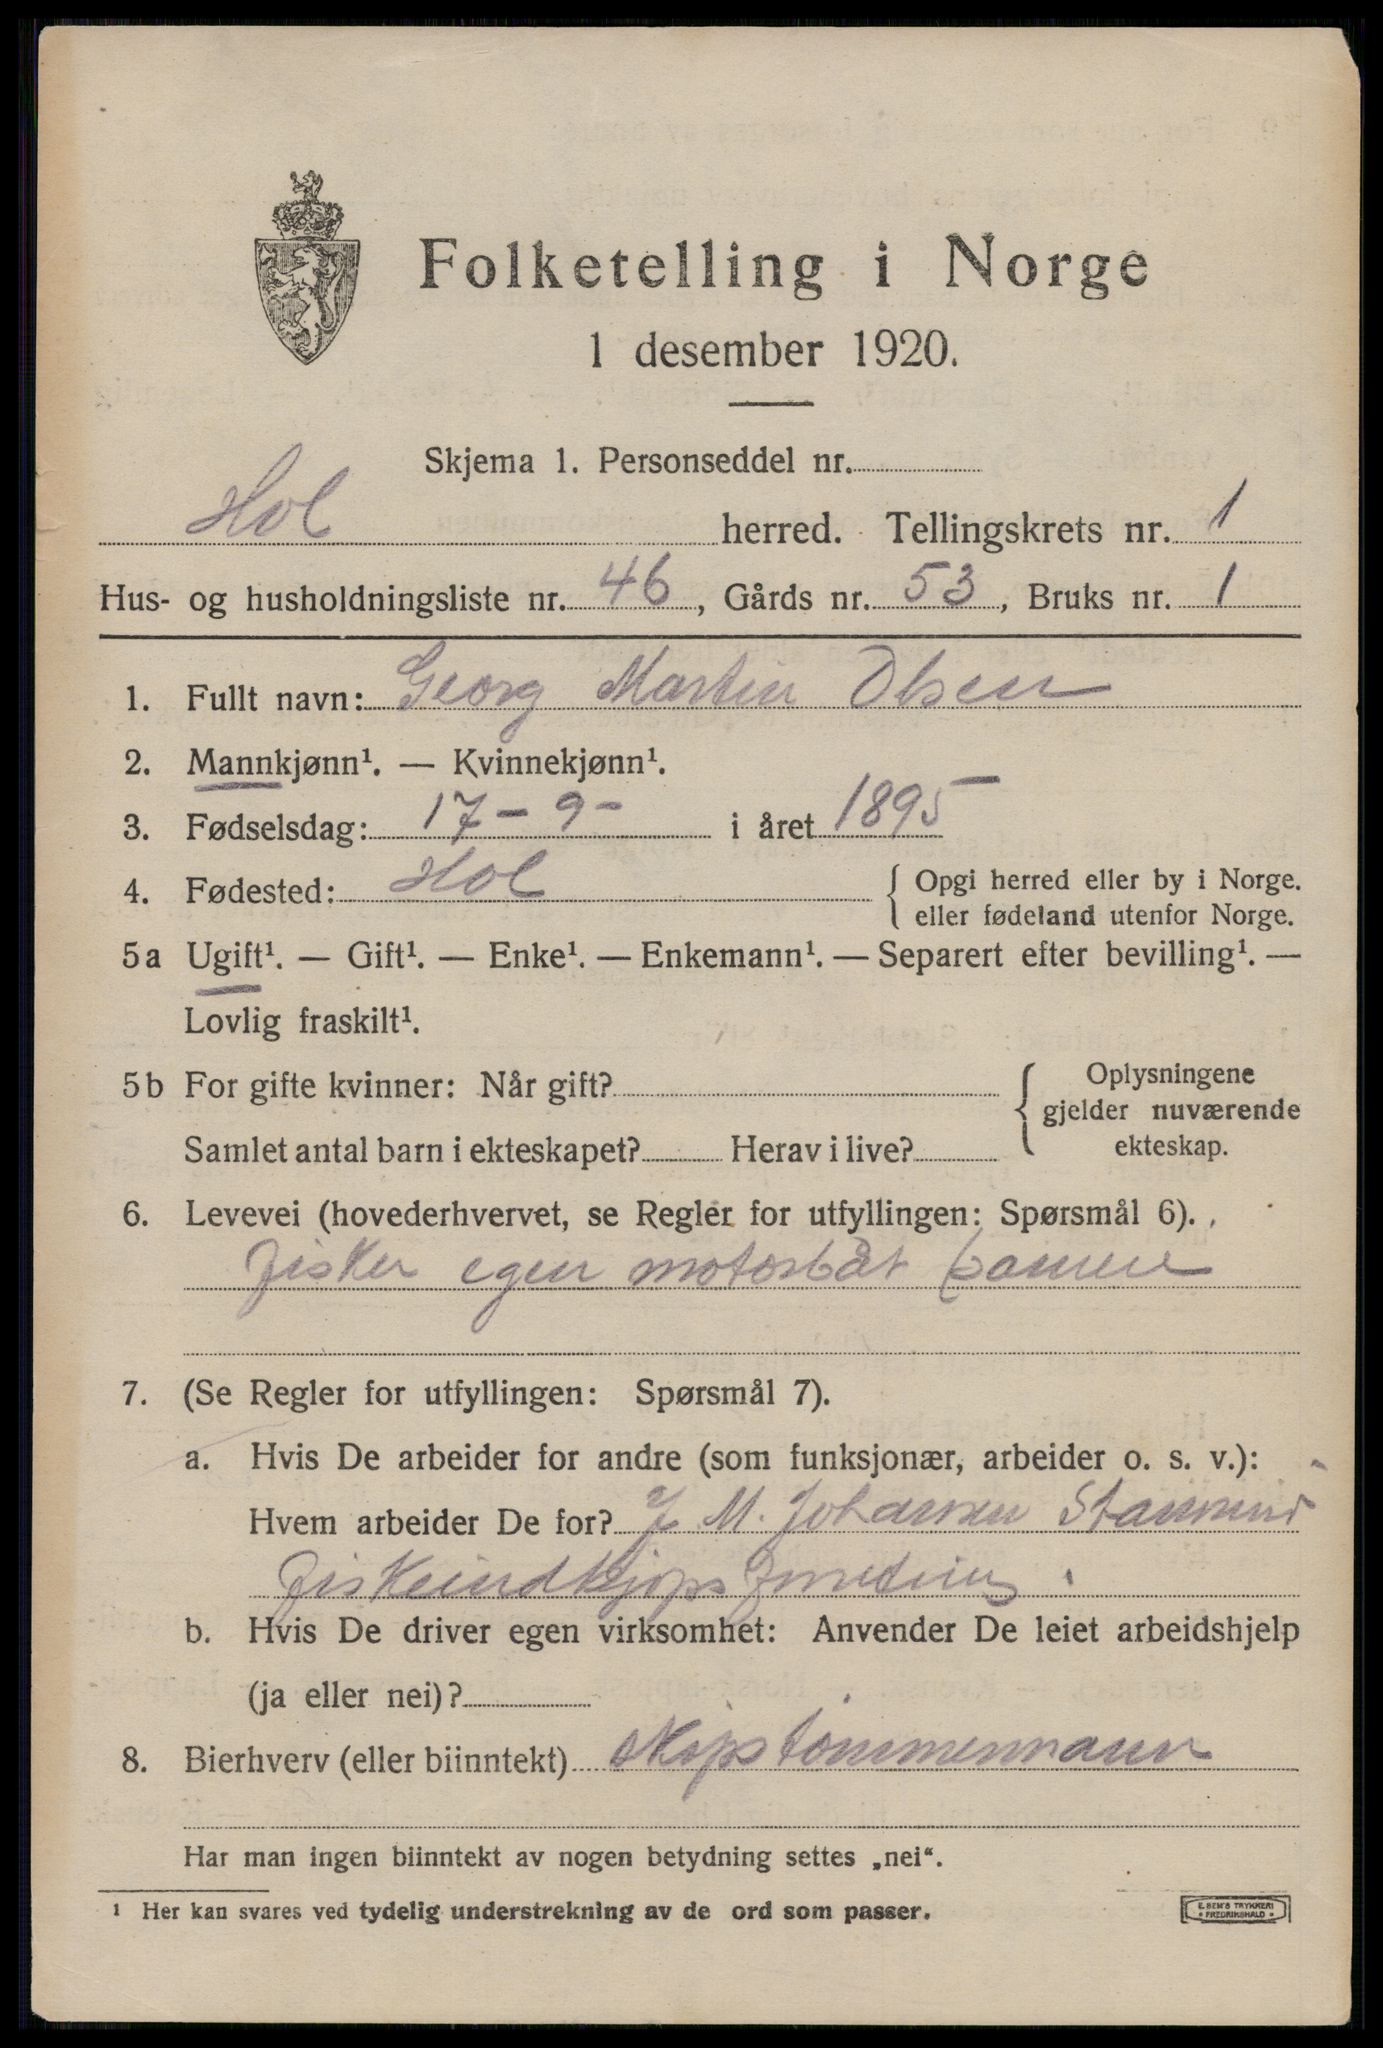 Folketelling i Norge
1 desember 1920.
Skjema 1. Personseddel nr.
Hol herred. Tellingskrets nr. 1
Hus- og husholdningsliste nr. 46, Gårds nr. 53, Bruks nr. 1
1. Fullt navn: Georg Martin Olsen
2. Mannkjønn¹. — Kvinnekjønn¹.
3. Fødselsdag: 17 - 9 - i året 1895
4. Fødested: Hol { Opgi herred eller by i Norge.
eller fødeland utenfor Norge.
5a Ugift¹. — Gift¹. — Enke¹. — Enkemann¹. — Separert efter bevilling¹. —
Lovlig fraskilt¹.
5b For gifte kvinner: Når gift? { Oplysningene
gjelder nuværende
Samlet antal barn i ekteskapet? Herav i live? ekteskap.
6. Levevei (hovederhvervet, se Regler for utfyllingen: Spørsmål 6).
Fisker egen motorbåt
7. (Se Regler for utfyllingen: Spørsmål 7).
a. Hvis De arbeider for andre (som funksjonær, arbeider o. s. v.):
Hvem arbeider De for? J M. Johansen Stamsund
Fiskeindkjøps
b. Hvis De driver egen virksomhet: Anvender De leiet arbeidshjelp
(ja eller nei)?
8. Bierhverv (eller biinntekt) skipstømmermann
Har man ingen biinntekt av nogen betydning settes „nei“.
¹ Her kan svares ved tydelig understrekning av de ord som passer.
E. SEM'S TRYKKERI
FREDRIKSHALD